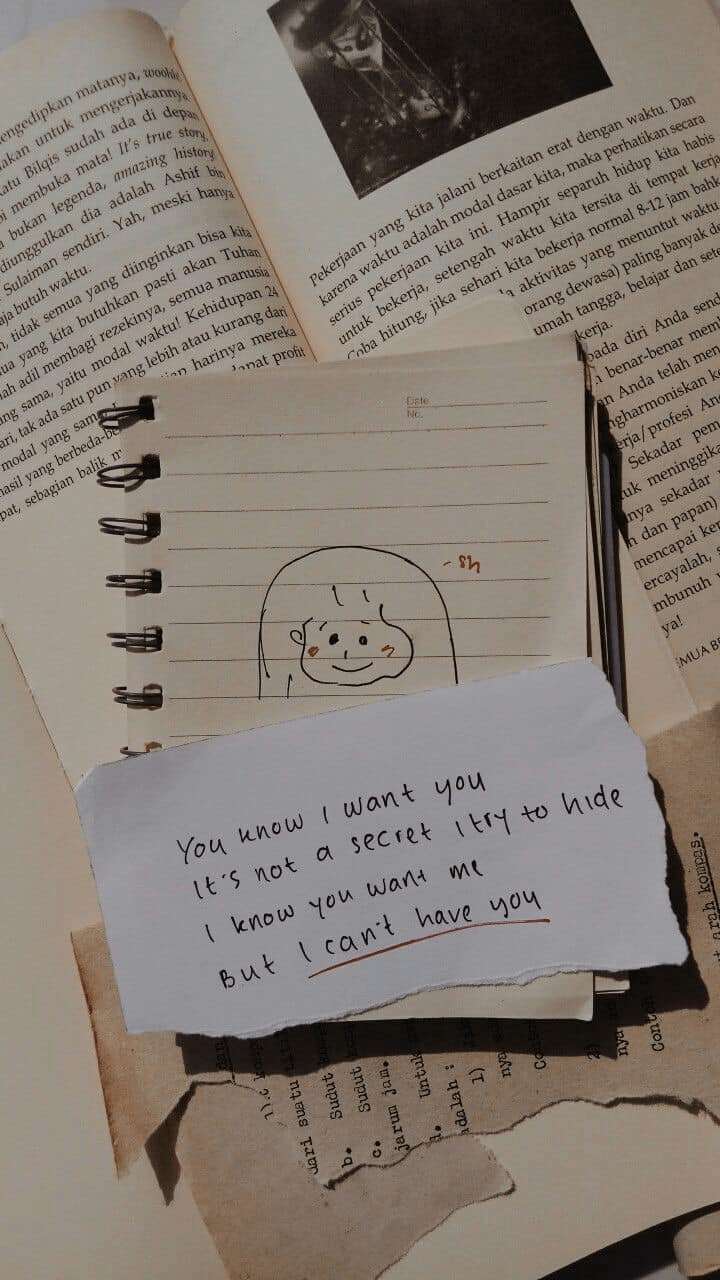 engedipkan matanya,
akan untuk mengerjakannya.
atu Bilqis sudah ada di depan
membuka mata! It's true story,
bukan legenda, amazing history!
diunggulkan dia adalah Ashif bin
Sulaiman sendiri. Yah, meski hanya
aja butuh waktu.
tidak semua yang diinginkan bisa kita
ua yang kita butuhkan pasti akan Tuhan
lah adil membagi rezekinya, semua manusia
ng sama, yaitu modal waktu! Kehidupan 24
ari, tak ada satu pun yang lebih atau kurang dari
modal yang sam
harinya mereka
hasil yang berbeda-be
dapat profit
pat, sebagian balik m
Pekerjaan yang kita jalani berkaitan erat dengan waktu. Dan
karena waktu adalah modal dasar kita, maka perhatikan secara
serius pekerjaan kita ini. Hampir separuh hidup kita habis
untuk bekerja, setengah waktu kita tersita di tempat kerja
Coba hitung, jika sehari kita bekerja normal 8-12 jam bahk
aktivitas yang menuntut waktu
orang dewasa) paling banyak de
umah tangga, belajar dan sete
kerja.
pada diri Anda sen
benar-benar mem
n Anda telah men
ngharmoniskan k
erja/profesi An
Sekadar pem
tuk meninggika
nya sekadar
n dan papan)
mencapai ke
ercayalah,
mbunuh
ya!
EMUA BE
Date
No.
-sh
You know I want you
It's not a secret I try to hide
I know you want me
But I can't have you
arah kompas.
dari suatu
Sudut
b.
Sudut
c.
jarum jam.
Untuk
d.
adalah :
1)
nya
Conto
2)
nya
Contoh